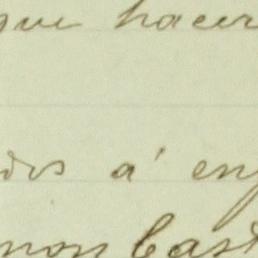 que hacer
dos á en
mon Cast